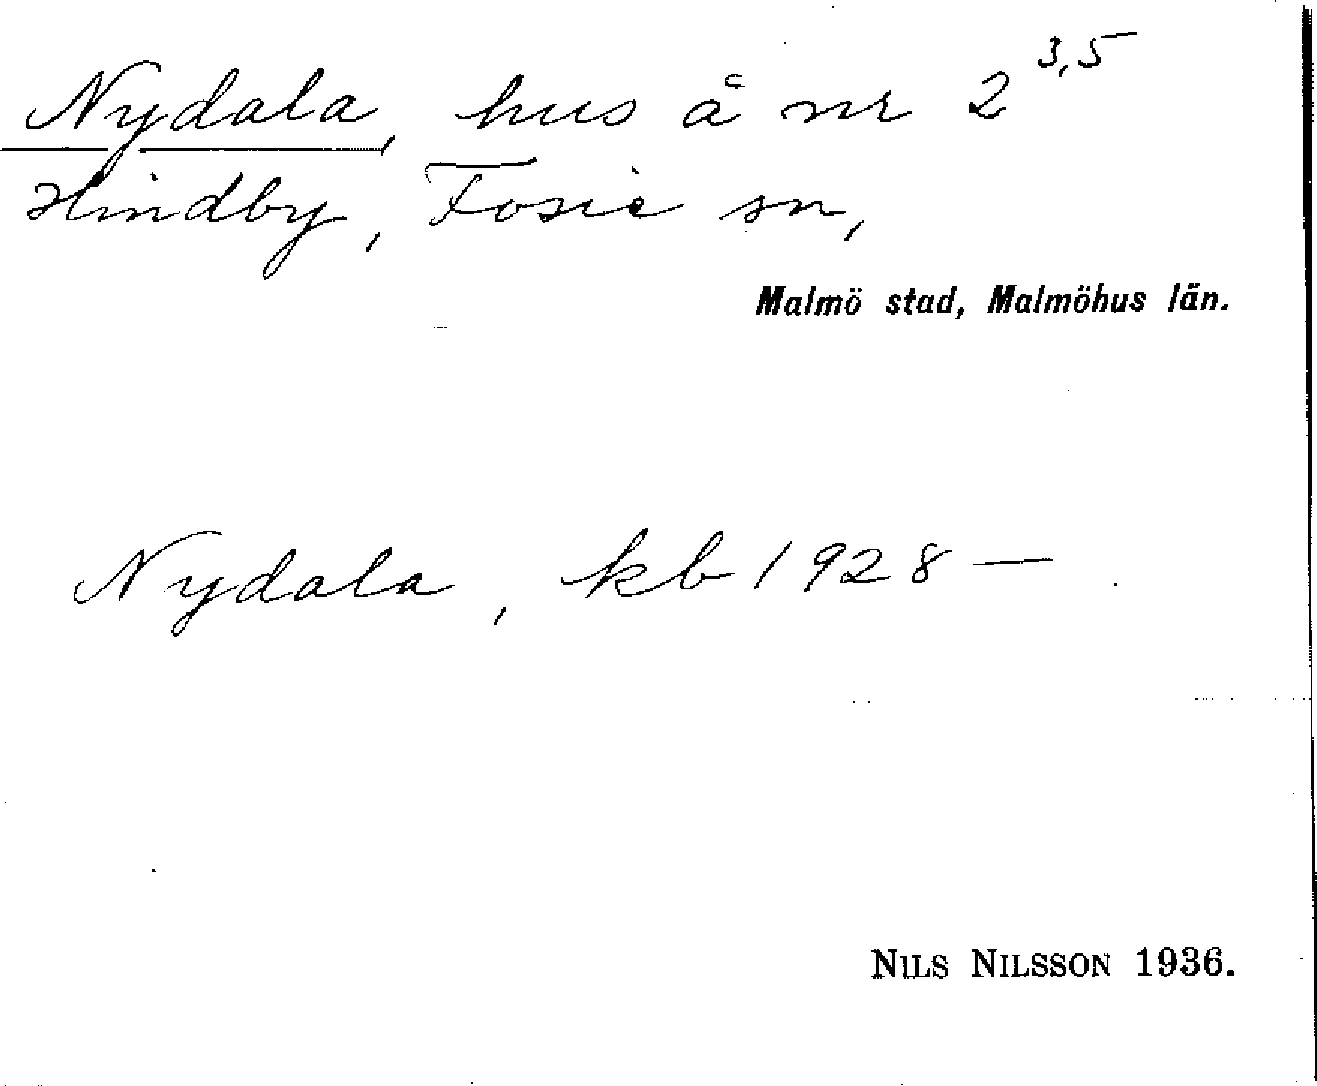 Nydala, hus å nr 2 3,5
Hindby, Fosie sn,
Malmö stad, Malmöhus län.
Nydala, kb 1928 —
NILS NILSSON 1936.